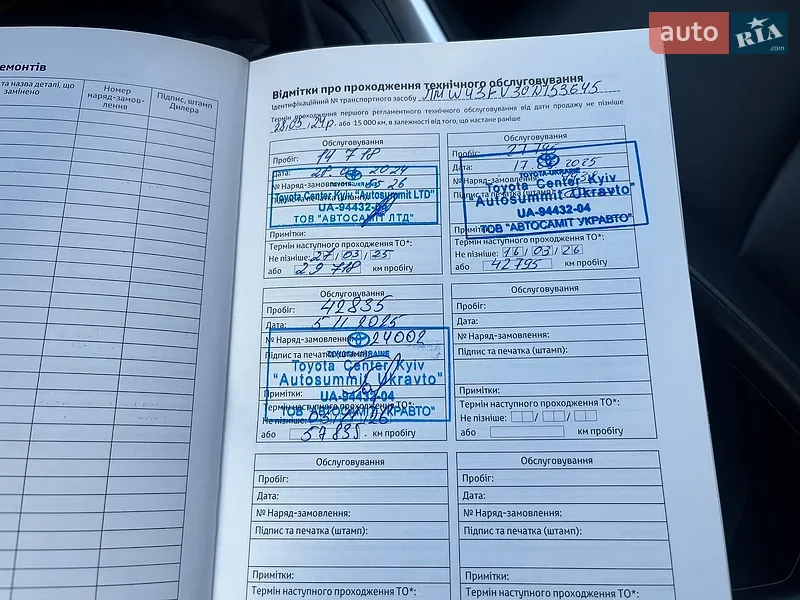 auto RIA.com
емонтів
та назва деталі, що замінено
Номер наряд-замов-лення
Підпис, штамп Дилера
Відмітки про проходження технічного обслуговування
Ідентифікаційний № транспортного засобу
Термін проходження першого регламентного технічного обслуговування від дати продажу не пізніше
28.05.24р. або 15 000 км, в залежності від того, що настане раніше
Обслуговування
Пробіг: 14 718
Дата: 2024
№ Наряд-замовлення
Toyota Center Kyiv "Autosummit LTD"
UA-94432-04
ТОВ "АВТОСАМІТ ЛТД"
Примітки:
Термін наступного проходження ТО*:
Не пізніше: 27/03/25
або 29 718 км пробігу
Обслуговування
Пробіг: 27 795
Дата: 17 2025
№ Наряд-замовлення
TOYOTA-UKRAINE
Toyota Center Kyiv
"Autosummit Ukravto"
UA-94432-04
ТОВ "АВТОСАМІТ УКРАВТО"
Термін наступного проходження ТО*:
Не пізніше: 16/03/26
або 42795 км пробігу
Обслуговування
Пробіг: 42835
Дата: 5 11 2025
№ Наряд-замовлення 24002
Підпис та печатка (штамп)
TOYOTA-UKRAINE
Toyota Center Kyiv
"Autosummit Ukravto"
Примітки:
UA-94432-04
Термін наступного проходження ТО*:
ТОВ "АВТОСАМІТ УКРАВТО"
Не пізніше:
або 57835 км пробігу
Обслуговування
Пробіг:
Дата:
№ Наряд-замовлення:
Підпис та печатка (штамп):
Примітки:
Термін наступного проходження ТО*:
Не пізніше: / /
або км пробігу
Обслуговування
Пробіг:
Дата:
№ Наряд-замовлення:
Підпис та печатка (штамп):
Примітки:
Термін наступного проходження ТО*:
Обслуговування
Пробіг:
Дата:
№ Наряд-замовлення:
Підпис та печатка (штамп):
Примітки:
Термін наступного проходження ТО*: